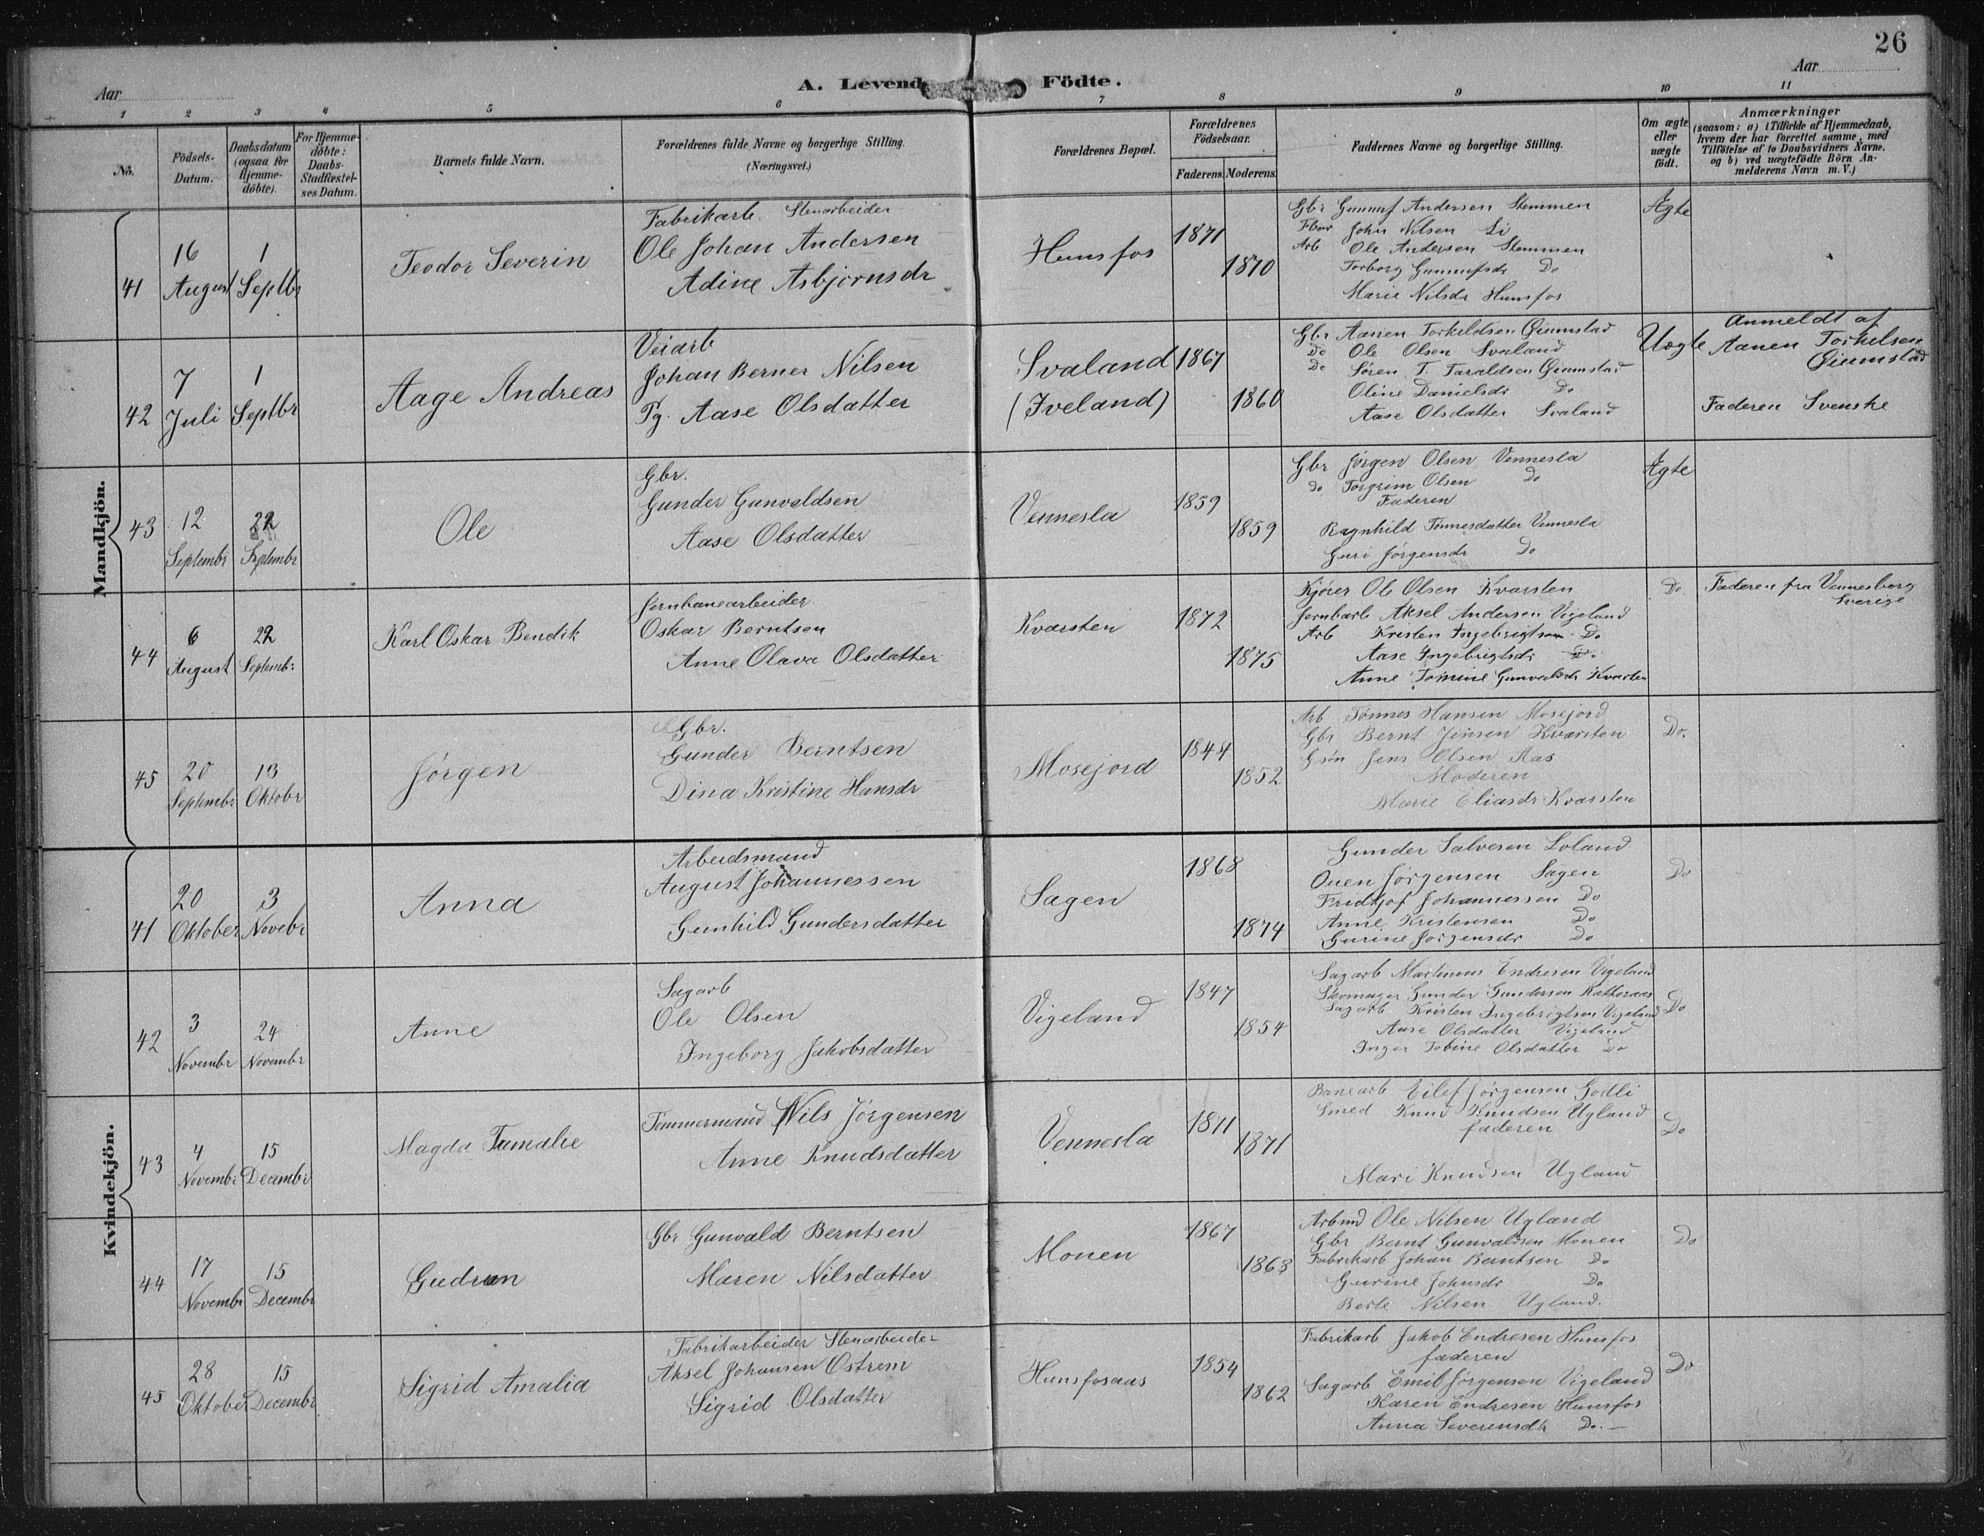 26
Aar
A. Levend Födte.
Aar
1 2 3 4 5 6 7 8 9 10 11
No.
Födsels-Datum.
Daabsdatum (ogsaa for Hjemme-döbte).
For Hjemme-döbte: Daabs-Stadfæstel-ses Datum.
Barnets fulde Navn.
Forældrenes fulde Navne og borgerlige Stilling. (Næringsvei.)
Forældrenes Bopæl.
Forældrenes Födselsaar.
Faderens. Moderens.
Faddernes Navne og borgerlige Stilling.
Om ægte eller uægte födt.
Anmærkninger
(saasom: a) i Tilfælde af Hjemmedaab, hvem der har forrettet samme, med Tilföielse af to Daabsvidners Navne, og b) ved uægtefödte Börn An-melderens Navn m. V.)
Mandkjön.
41
16 August
1 Septbr
Teodor Severin
Fabrikarb. Stenarbeider
Ole Johan Andersen
Adine Asbjørnsdr
Hunsfos
1871
1870
Gbr Gunnuf Andersen Stemmen
John Nilsen Li
Arb Ole Andersen Stemmen
Torborg Gunnufsdr Do
Marie Nilsdr Hunsfos
Ægte
42
7 Juli
1 Septbr
Aage Andreas
Veiarb
Johan Berner Nilsen
Pg. Aase Olsdatter
Svaland
(Iveland)
1867
1860
Gbr Aanen Torkildsen Giumstad
Do Ole Olsen Svaland
Do Søren T. Taraldsen Giumstad
Oline Danielsdr Do
Aase Olsdatter Svaland
Uægte
Anmeldt af
Aanen Torkelsen
Giumstad
Faderen Svenske
43
12 Septembr
22 Septembr
Ole
Gbr.
Gunder Gunvaldsen
Aase Olsdatter
Vennesla
1859
1859
Gbr Jørgen Olsen Vennesla
Do Torgrim Olsen Do
Faderen
Ragnhild Tønnesdatter Vennesla
Guri Jørgensdr Do
Ægte
44
6 August
22 Septemb:
Karl Oskar Bendik
Jernbanearbeider
Oskar Berntsen
Anne Olava Olsdatter
Kvarsten
1872
1875
Kjører Ole Olsen Kvarsten
Jernbarb Aksel Andersen Vigeland
Arb Kristen Ingebrigtsen Do
Aase Ingebrigtsdr Do.
Anne Tomine Gunvaldsdr Kvarsten
Do
Faderen fra Vennesborg
Sverige
45
20 Septembr
13 Oktobr
Jørgen
Gbr.
Gunder Berntsen
Dina Kristine Hansdr
Mosejord
1844
1852
Arb Tønnes Hansen Mosejord
Gbr Bernt Jensen Kvarsten
Gsøn Jens Olsen Aas
Moderen
Marie Eliasdr Kvarsten
Do.
Kvindekjön.
41
20 Oktober
3 Novebr
Anna
Arbeidsmand
August Johannessen
Gunhild Gundersdatter
Sagen
1868
1874
Gunder Salvesen Loland
Ouen Jørgensen Sagen
Fridtjof Johannessen Do
Anne Kristensen Do
Gurine Jørgensdr Do
Do
42
3 Novembr
24 Novembr
Anne
Sagarb
Ole Olsen
Ingeborg Jakobsdatter
Vigeland
1847
1854
Sagarb Martinus Endresen Vigeland
Skomager Gunder Gundersen Katteraas
Sagarb Kristen Ingebrigtsen Vigeland
Aase Olsdatter Vigeland
Inger Tobine Olsdatter Do
Do
43
4 Novembr
15 Decembr
Magda Tamalie
Tømmermand Nils Jørgensen
Anne Knudsdatter
Vennesla
1871
1871
Banearb Eilef Jørgensen Godli
Smed Knud Knudsen Ugland
faderen
Mari Knudsen Ugland
Do
44
17 Novembr
15 Decembr
Gudrun
Gbr Gunvald Berntsen
Maren Nilsdatter
Monen
1867
1863
Arbmd Ole Nilsen Ugland
Gbr Bernt Gunvaldsen Monen
Fabrikarb Johan Berntsen Do
Gurine Johnsdr Do
Berte Nilsen Ugland.
Do
45
28 Oktober
15 Decembr
Sigrid Amalia
Fabrikarbeider Stenarbeider
Aksel Johansen Ostrem
Sigrid Olsdatter
Hunsfosaas
1854
1862
Fabrikarb Jakob Endresen Hunsfos
faderen
Sagarb Emil Jørgensen Vigeland
Karen Endresen Hunsfos
Anna Severensdr Do.
Do